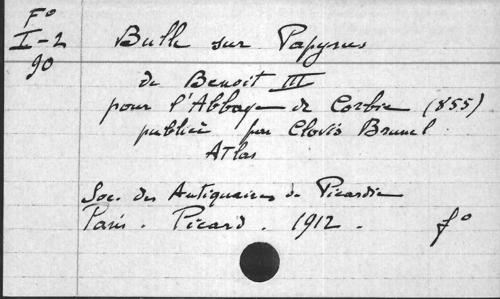 F°
I-2
90
Bulle sur Papyrus
de Benoit III
pour l'Abbaye de Corbie (855)
publiée par Clovis Brunel
Atlas
Soc. des Antiquaires de Picardie
Paris. Picard. 1912. f°